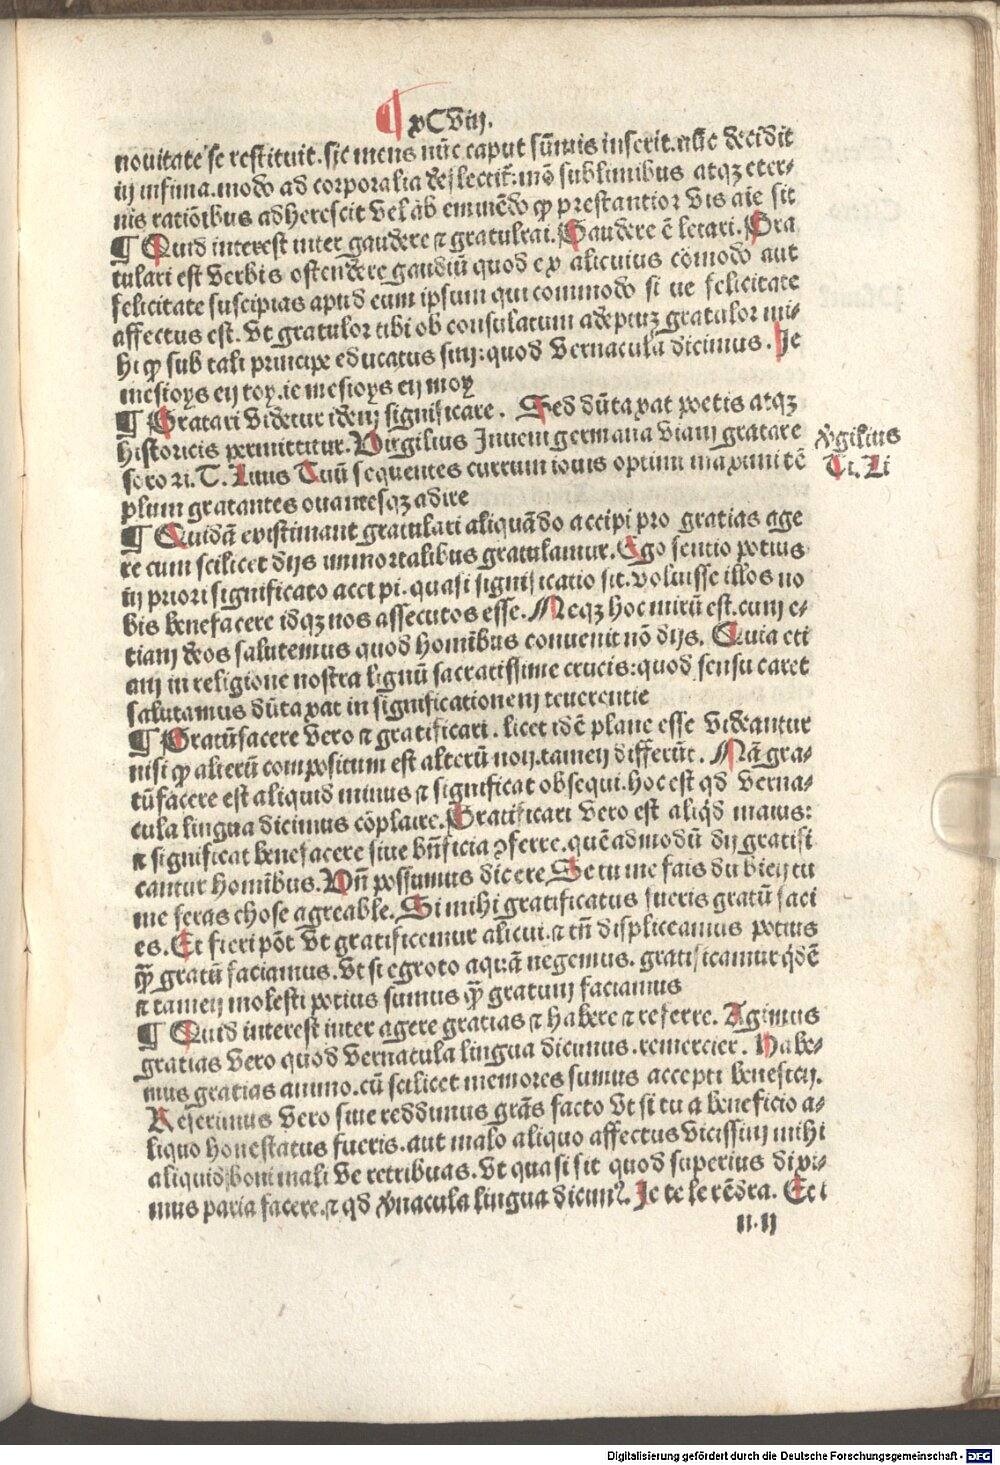 ¶ xCViij.
nouitate se restituit. sic mens nūc caput sūmis inserit. nūc decidit
in infima. modo ad corporalia deflectit: mō sublimibus atqꝫ eter-
nis ratiōibus adherescit vel ab eminēdo ꝙ prestantior vis aīe sit
¶ Quid interest inter gaudere ⁊ gratulrai. Gaudere ē letari. Gra
tulari est verbis ostendere gaudiū quod ex alicuius cōmodo aut
felicitate suscipias apud eum ipsum qui commodo si ue felicitate
affectus est. Vt gratulor tibi ob consulatum adeptuꝫ gratulor mi-
hi ꝙ sub tali principe educatus sim: quod vernacula dicimus. Je
mesioys en toy. ie mesioys en moy
¶ Gratari videtur idem significare. Sed dūtaxat poetis atqꝫ
historicis permittitur. Virgilius Jnueni germana viam gratare
soro ri. T. Liuius Tuū sequentes currum iouis optimi maximi tē
plum gratantes ouantesqꝫ adire
Vgilius
Ti. Li
¶ Quidā existimant gratulari aliquādo accipi pro gratias age
re cum scilicet dijs immortalibus gratulamur. Ego sentio potius
in priori significato acci pi. quasi significatio sit. voluisse illos no
bis benefacere idqꝫ nos assecutos esse. Neqꝫ hoc mirū est. cum e-
tiam deos salutemus quod hominibus conuenit nō dijs. Quia eti
am in religione nostra lignū sacratissime crucis: quod sensu caret
salutamus dūtaxat in significationem reuerentie
¶ Gratūfacere vero ⁊ gratificari. licet idē plane esse videantur
nisi ꝙ alterū compositum est alterū non. tamen differūt. Nā gra-
tūfacere est aliquid minus ⁊ significat obsequi. hoc est qd verna-
cula lingua dicimus cōplaire. Gratificari vero est aliqd maius:
⁊ significat benefacere siue bn̄ficia ↄferre. quēadmodū dij gratifi
cantur hominibus. Vn̄ possumus dicere Se tu me fais du bien tu
me feras chose agreable. Si mihi gratificatus fueris gratū faci
es. Et fieri pōt vt gratificemur alicui. ⁊ tn̄ displiceamus potius
ꝙ̄ gratū faciamus. Vt si egroto aquā negemus. gratificamur qdē
⁊ tamen molesti potius sumus ꝙ̄ gratum faciamus
¶ Quid interest inter agere gratias ⁊ habere ⁊ referre. Agimus
gratias vero quod vernacula lingua dicimus. remercier. Habe-
mus gratias animo. cū scilicet memores sumus accepti beneficij.
Referimus vero siue reddimus grās facto vt si tu a beneficio a-
liquo honestatus fueris. aut malo aliquo affectus vicissim mihi
aliquid boni mali ve retribuas. Vt quasi sit quod superius dixi-
mus paria facere. ⁊ qd vnacula lingua dicimꝰ. Je te le rēdra. Et i
n.ij
Digitalisierung gefördert durch die Deutsche Forschungsgemeinschaft - DFG